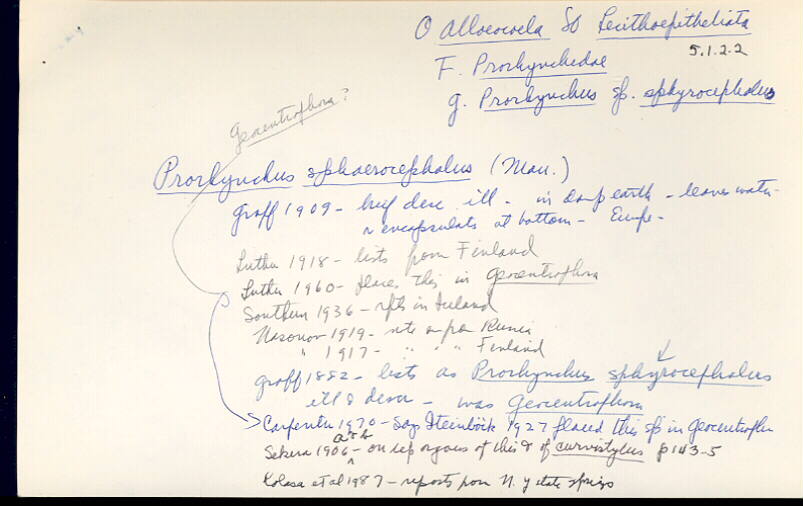 O Alloeocoela SO Lecithoepitheliata
5.1.2.2
F. Prorhynchidae
g. Prorhynchus sp. sphyrocephalus
Geocentrophora?
Prorhynchus sphaerocephalus (Man.)
Graff 1909 - brief desc. ill - in damp earth - leaves water
& encapsulates at bottom - Europe -
Luther 1918 - lists from Finland
Luther 1960 - places this in Geocentrophora
Southern 1936 - rpts in Ireland
Nasonov 1919 - note on from Russia
" 1917 - " " " Finland
Graff 1882 - lists as Prorhynchus sphyrocephalus
ill & descr - was Geocentrophora
Carpenter 1970 - Says Steinböck 1927 placed this sp in Geocentrophora
Sekera 1906 a & b - on rep organs of this & of curvistylus p 143-5
Kolasa et al 1987 - reports from N. Y state springs